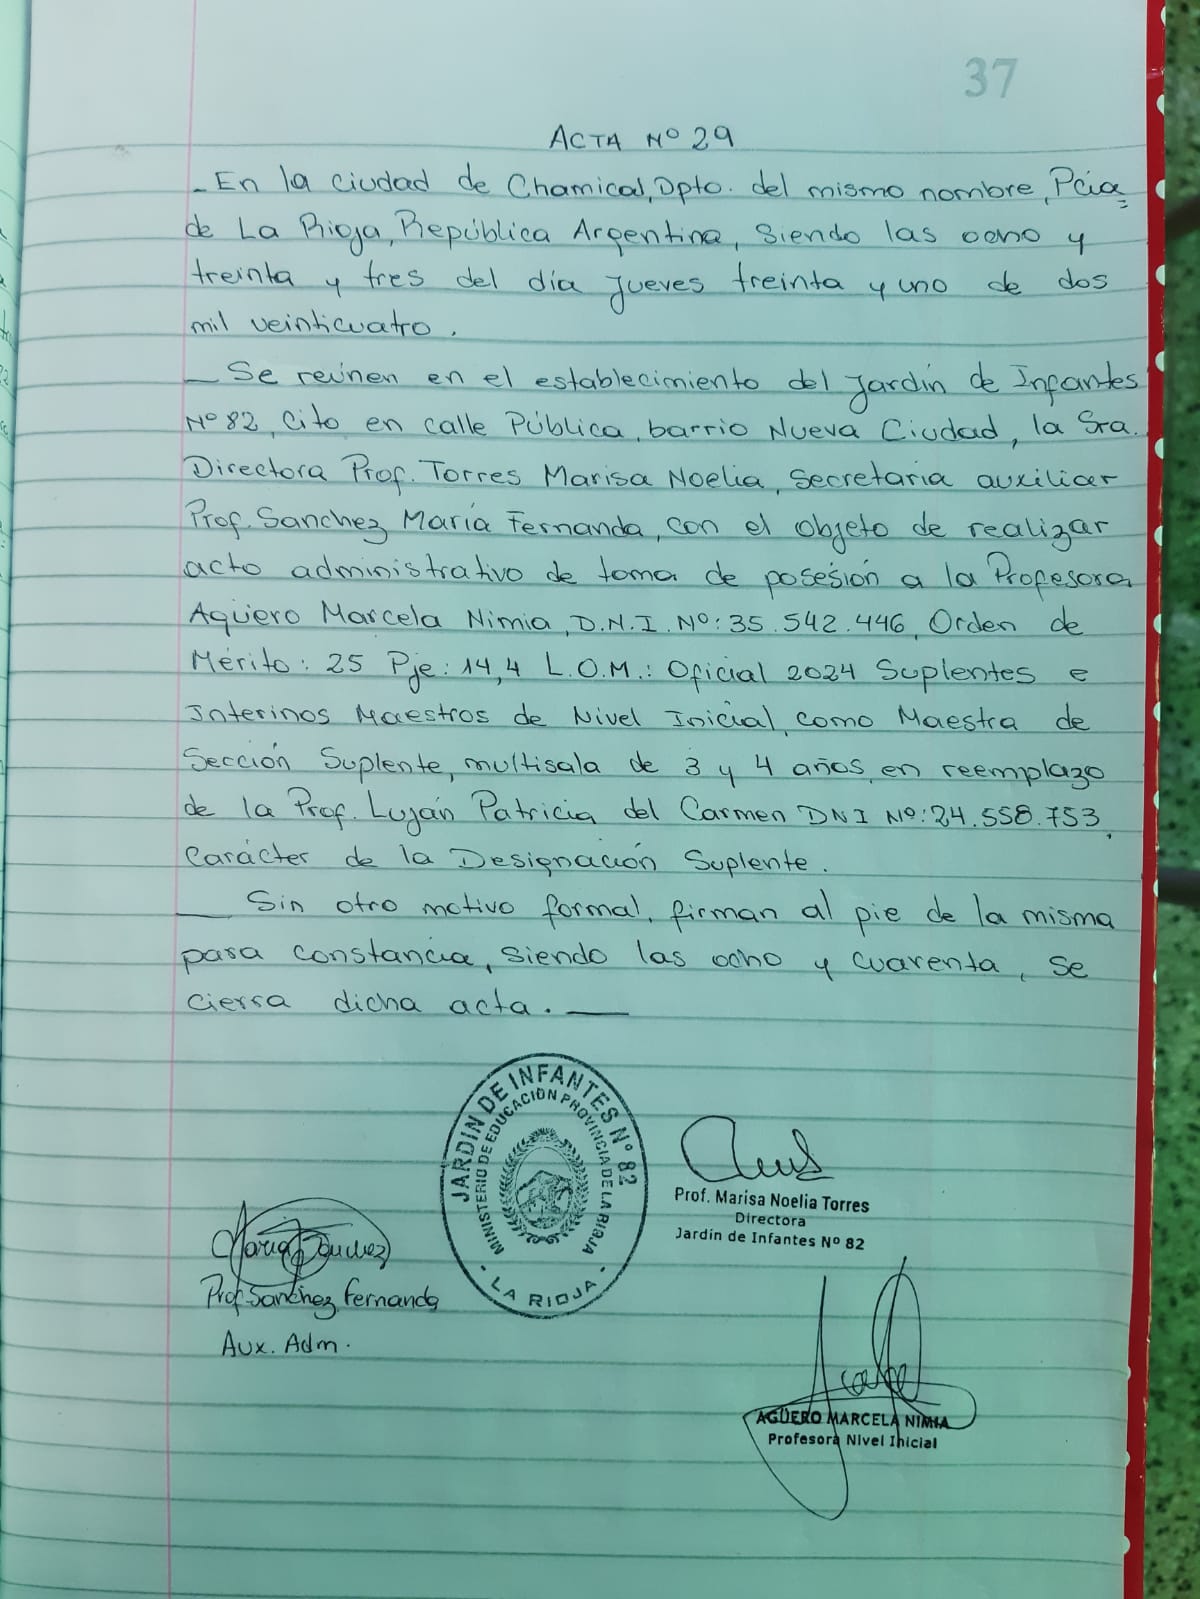 37
ACTA Nº 29
- En la ciudad de Chamical, Dpto. del mismo nombre, Pcia
de La Rioja, República Argentina, siendo las ocho y
treinta y tres del día jueves treinta y uno de dos
mil veinticuatro.
— Se reúnen en el establecimiento del Jardín de Infantes
Nº 82, Cito en calle Pública, barrio Nueva Ciudad, la Sra.
Directora Prof. Torres Marisa Noelia, Secretaria auxilicar
Prof. Sanchez María Fernanda, con el objeto de realizar
acto administrativo de toma de posesión a la Profesora
Agüero Marcela Nimia, D.N.I. Nº: 35.542.446, Orden de
Mérito: 25 Pje: 14,4 L.O.M.: Oficial 2024 Suplentes e
Interinos Maestros de Nivel Inicial, como Maestra de
Sección Suplente, multisala de 3 y 4 años, en reemplazo
de la Prof. Luján Patricia del Carmen DNI Nº: 24.558.753,
Carácter de la Designación Suplente.
— Sin otro motivo formal, firman al pie de la misma
para constancia, siendo las ocho y cuarenta, se
cierra dicha acta. —
JARDIN DE INFANTES Nº 82
MINISTERIO DE EDUCACIÓN PROVINCIA DE LA RIOJA
· LA RIOJA ·
Prof. Marisa Noelia Torres
Directora
Jardín de Infantes Nº 82
María Sanchez
Prof. Sanchez, Fernanda
Aux. Adm.
AGÜERO MARCELA NIMIA
Profesora Nivel Inicial